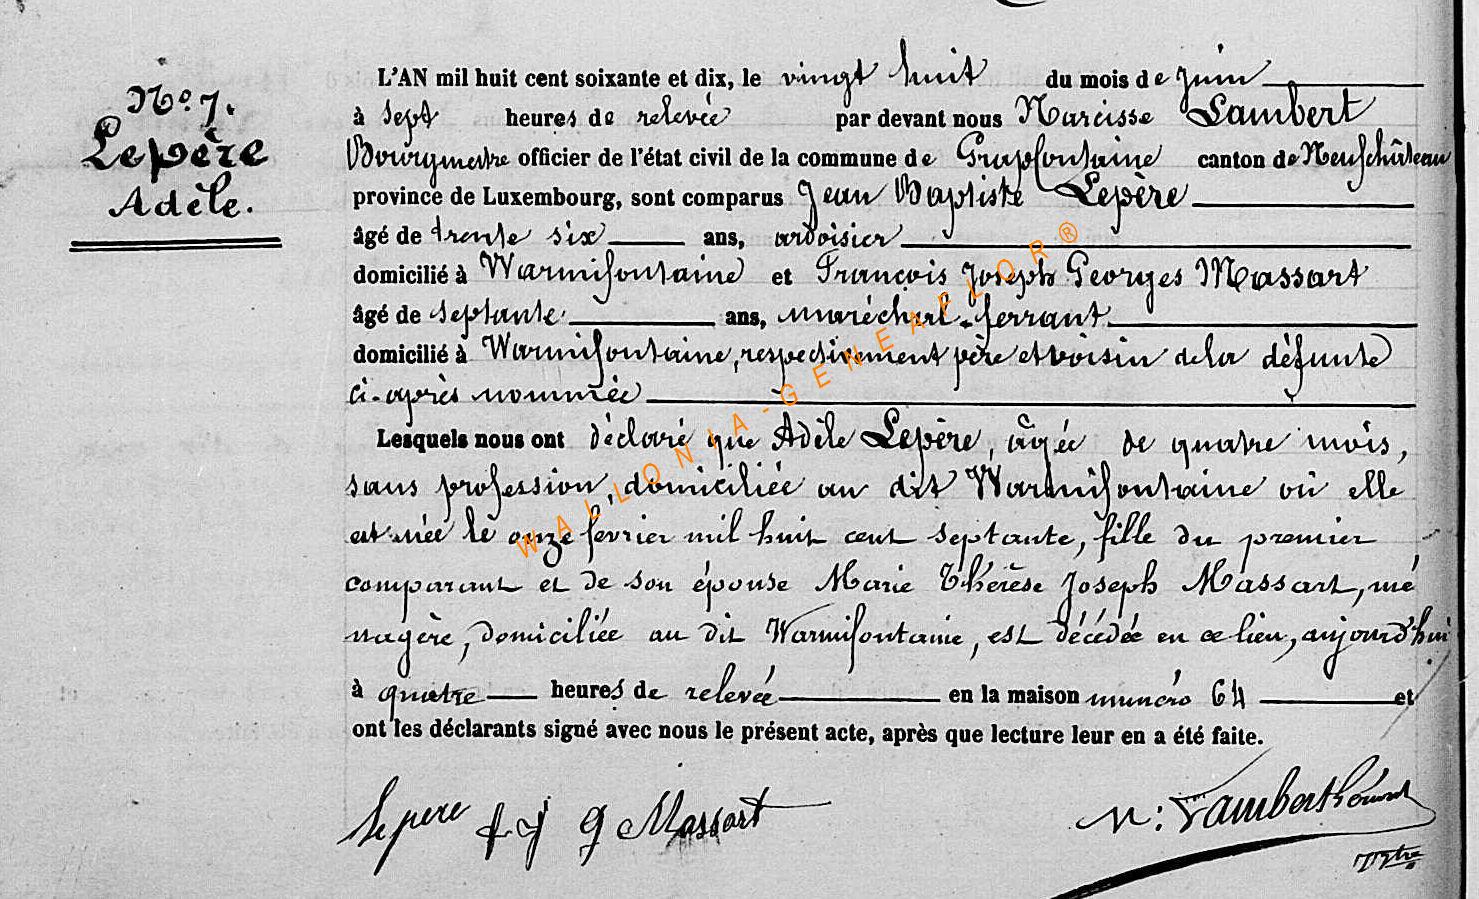 N° 7.
Lepère
Adèle.
L'AN mil huit cent soixante et dix, le vingt huit du mois de juin
à sept heures de relevée par devant nous Narcisse Lambert
Bourgmestre officier de l'état civil de la commune de Grapfontaine canton de Neufchâteau
province de Luxembourg, sont comparus Jean Baptiste Lepère
âgé de trente six ans, ardoisier
domicilié à Warmifontaine et François Joseph Georges Massart
âgé de septante ans, maréchal-ferrant
domicilié à Warmifontaine, respectivement père et voisin de la défunte
ci-après nommée
Lesquels nous ont déclaré que Adèle Lepère, âgée de quatre mois,
sans profession, domiciliée au dit Warmifontaine où elle
est née le onze fevrier mil huit cent septante, fille du premier
comparant et de son épouse Marie Thérèse Joseph Massart, mé
nagère, domiciliée au dit Warmifontaine, est décédée en ce lieu, aujourd'hui
à quatre heures de relevée en la maison numéro 64 et
ont les déclarants signé avec nous le présent acte, après que lecture leur en a été faite.
Lepere f j g Massart N: Lambert
WALLONIA-GENEAFLOR®